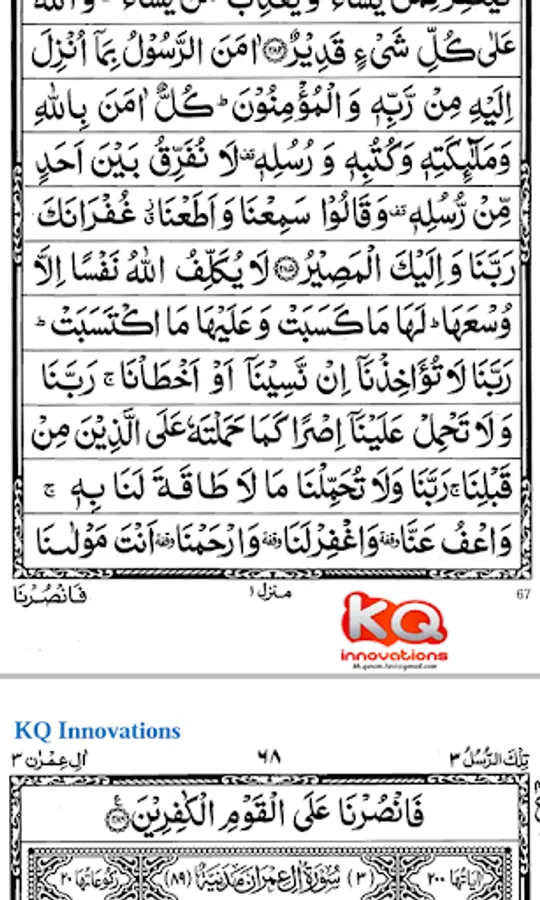 عَلٰى كُلِّ شَیْءٍ قَدِيْرٌ ﴿۲۸۴﴾ اٰمَنَ الرَّسُوْلُ بِمَاۤ اُنْزِلَ
اِلَيْهِ مِنْ رَّبِّهٖ وَالْمُؤْمِنُوْنَ ؕ كُلٌّ اٰمَنَ بِاللّٰهِ
وَمَلٰٓئِكَتِهٖ وَكُتُبِهٖ وَرُسُلِهٖ قف لَا نُفَرِّقُ بَيْنَ اَحَدٍ
مِّنْ رُّسُلِهٖ قف وَقَالُوْا سَمِعْنَا وَاَطَعْنَا غُفْرَانَكَ
رَبَّنَا وَاِلَيْكَ الْمَصِيْرُ ﴿۲۸۵﴾ لَا يُكَلِّفُ اللّٰهُ نَفْسًا اِلَّا
وُسْعَهَا ؕ لَهَا مَا كَسَبَتْ وَعَلَيْهَا مَا اكْتَسَبَتْ ؕ
رَبَّنَا لَا تُؤَاخِذْنَاۤ اِنْ نَّسِيْنَاۤ اَوْ اَخْطَاْنَا ۚ رَبَّنَا
وَلَا تَحْمِلْ عَلَيْنَاۤ اِصْرًا كَمَا حَمَلْتَهٗ عَلَى الَّذِيْنَ مِنْ
قَبْلِنَا ۚ رَبَّنَا وَلَا تُحَمِّلْنَا مَا لَا طَاقَةَ لَنَا بِهٖ ۚ
وَاعْفُ عَنَّا وقفة وَاغْفِرْ لَنَا وقفة وَارْحَمْنَا وقفة اَنْتَ مَوْلٰىنَا
فَانْصُرْنَا منزل ۱ 67
KQ
innovations
KQ Innovations
تِلْكَ الرُّسُلُ ۳ ۶۸ اٰلِ عِمْرٰن ۳
فَانْصُرْنَا عَلَى الْقَوْمِ الْكٰفِرِيْنَ ﴿۲۸۶﴾ ع
اٰيَاتُهَا ۲۰۰ (۳) سُوْرَةُ اٰلِ عِمْرٰنَ مَدَنِيَّةٌ (۸۹) رُكُوْعَاتُهَا ۲۰